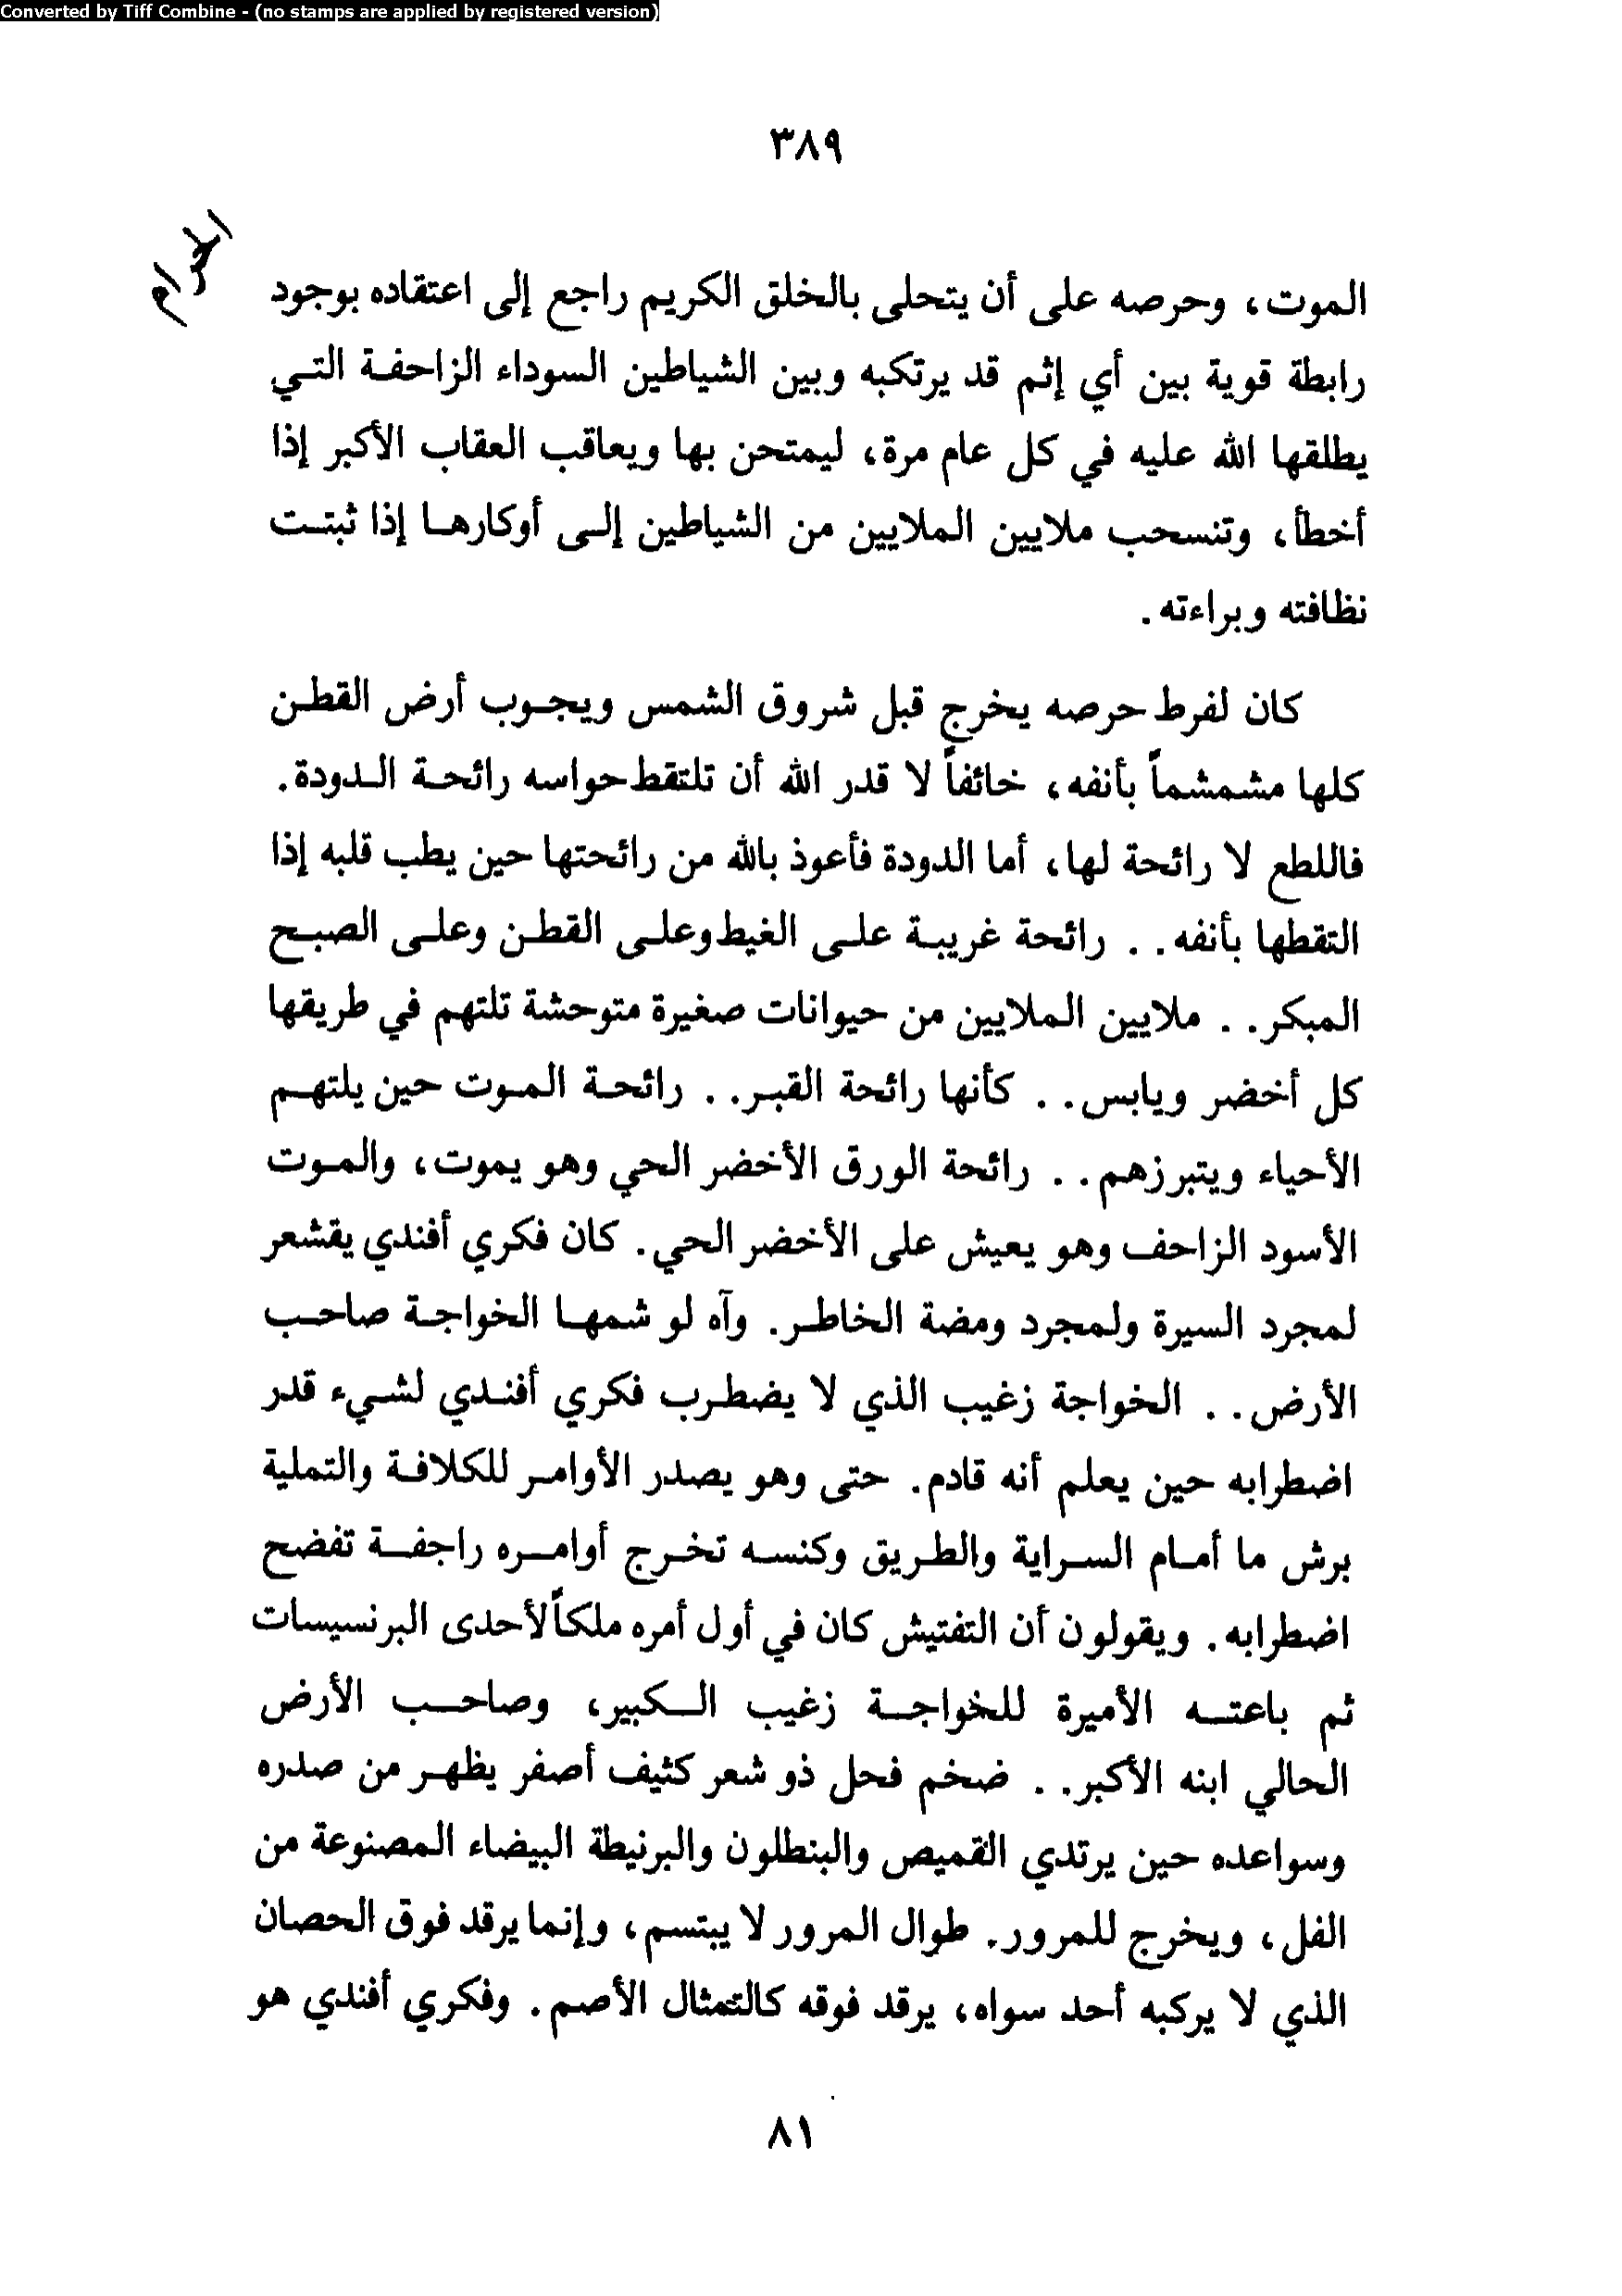 Converted by Tiff Combine - (no stamps are applied by registered version)
٣٨٩
الحرام
الموت، وحرصه على أن يتحلى بالخلق الكريم راجع إلى اعتقاده بوجود
رابطة قوية بين أي إثم قد يرتكبه وبين الشياطين السوداء الزاحفة التي
يطلقها الله عليه في كل عام مرة، ليمتحن بها ويعاقب العقاب الأكبر إذا
أخطأ، وتنسحب ملايين الملايين من الشياطين إلى أوكارها إذا ثبتت
نظافته وبراءته.
كان لفرط حرصه يخرج قبل شروق الشمس ويجوب أرض القطن
كلها مشمشماً بأنفه، خائفاً لا قدر الله أن تلتقط حواسه رائحة الدودة.
فاللطع لا رائحة لها، أما الدودة فأعوذ بالله من رائحتها حين يطب قلبه إذا
التقطها بأنفه.. رائحة غريبة على الغيط وعلى القطن وعلى الصبح
المبكر.. ملايين الملايين من حيوانات صغيرة متوحشة تلتهم في طريقها
كل أخضر ويابس.. كأنها رائحة القبر.. رائحة الموت حين يلتهم
الأحياء ويتبرزهم.. رائحة الورق الأخضر الحي وهو يموت، والموت
الأسود الزاحف وهو يعيش على الأخضر الحي. كان فكري أفندي يقشعر
لمجرد السيرة ولمجرد ومضة الخاطر. وآه لو شمها الخواجة صاحب
الأرض.. الخواجة زغيب الذي لا يضطرب فكري أفندي لشيء قدر
اضطرابه حين يعلم أنه قادم. حتى وهو يصدر الأوامر للكلافة والتملية
برش ما أمام السراية والطريق وكنسه تخرج أوامره راجفة تفضح
اضطرابه. ويقولون أن التفتيش كان في أول أمره ملكاً لأحدى البرنسيسات
ثم باعته الأميرة للخواجة زغيب الكبير، وصاحب الأرض
الحالي ابنه الأكبر.. ضخم فحل ذو شعر كثيف أصفر يظهر من صدره
وسواعده حين يرتدي القميص والبنطلون والبرنيطة البيضاء المصنوعة من
الفل، ويخرج للمرور. طوال المرور لا يبتسم، وإنما يرقد فوق الحصان
الذي لا يركبه أحد سواه، يرقد فوقه كالتمثال الأصم. وفكري أفندي هو
٨١